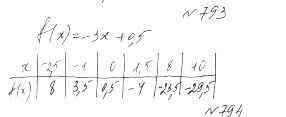 №793
f(x)=-3x+0,5
x | -2,5 | -1 | 0 | 1,5 | 8 | 10
f(x) | 8 | 3,5 | 0,5 | -4 | -23,5 | -29,5
№794